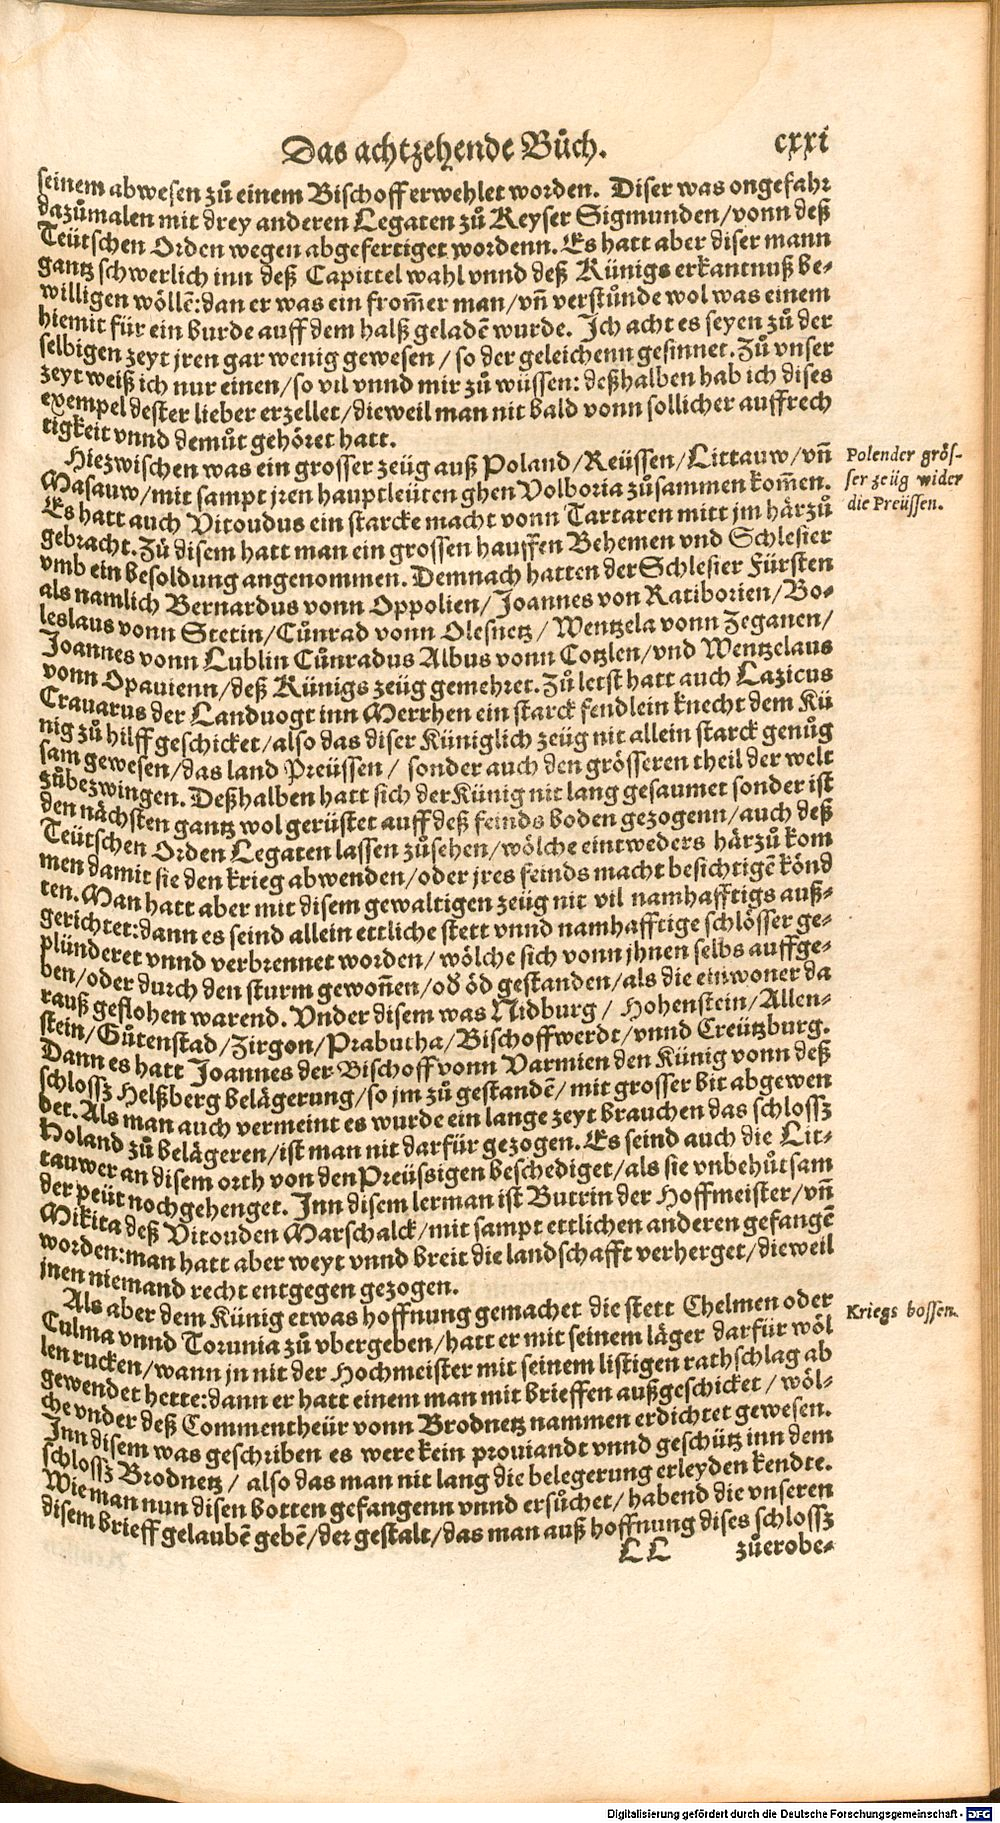 Das achtzehende Bůch.
cxxi
seinem abwesen zů einem Bischoff erwehlet worden. Diser was ongefahr
dazůmalen mit drey anderen Legaten zů Keyser Sigmunden/vonn deß
Teütschen Orden wegen abgefertiget wordenn. Es hatt aber diser mann
gantz schwerlich inn deß Capittel wahl vnnd deß Künigs erkantnuß be-
willigen wöllē: dan er was ein from̄er man/vn̄ verstůnde wol was einem
hiemit für ein burde auff dem halß geladē wurde. Ich acht es seyen zů der
selbigen zeyt jren gar wenig gewesen/so der geleichenn gesinnet. Zů vnser
zeyt weiß ich nur einen/so vil vnnd mir zů wüssen: deßhalben hab ich dises
exempel dester lieber erzellet/dieweil man nit bald vonn sollicher auffrech
tigkeit vnnd demůt gehöret hatt.
Hiezwischen was ein grosser zeüg auß Poland/Reüssen/Littauw/vn̄
Masauw/mit sampt jren hauptleüten ghen Volboria zůsammen kom̄en.
Es hatt auch Vitoudus ein starcke macht vonn Tartaren mitt jm härzů
gebracht. Zů disem hatt man ein grossen hauffen Behemen vnd Schlesier
vmb ein besoldung angenommen. Demnach hatten der Schlesier Fürsten
als namlich Bernardus vonn Oppolien/Joannes von Ratiborien/Bo-
leslaus vonn Stetin/Cůnrad vonn Olesnetz/Wentzela vonn Zeganen/
Joannes vonn Lublin Cůnradus Albus vonn Cotzlen/vnd Wentzelaus
vonn Opauienn/deß Künigs zeüg gemehret. Zů letst hatt auch Lazicus
Crauarus der Landuogt inn Merrhen ein starck fendlein knecht dem Kü
nig zů hilff geschicket/also das diser Küniglich zeüg nit allein starck genůg
sam gewesen/das land Preüssen/sonder auch den grösseren theil der welt
zůbezwingen. Deßhalben hatt sich der Künig nit lang gesaumet sonder ist
den nächsten gantz wol gerüstet auff deß feinds boden gezogenn/auch deß
Teütschen Orden Legaten lassen zůsehen/wölche eintweders härzů kom
men damit sie den krieg abwenden/oder jres feinds macht besichtigē könd
ten. Man hatt aber mit disem gewaltigen zeüg nit vil namhafftigs auß-
gerichtet: dann es seind allein ettliche stett vnnd namhafftige schlösser ge-
plünderet vnnd verbrennet worden/wölche sich vonn jhnen selbs auffge-
ben/oder durch den sturm gewon̄en/od̕ öd gestanden/als die einwoner da
rauß geflohen warend. Vnder disem was Nidburg/Hohenstein/Allen-
stein/Gůtenstad/Zirgon/Prabutha/Bischoffwerdt/vnnd Creützburg.
Dann es hatt Joannes der Bischoff vonn Varmien den Künig vonn deß
schlossz Helßberg belägerung/so jm zů gestandē/mit grosser bit abgewen
det. Als man auch vermeint es wurde ein lange zeyt brauchen das schlossz
Holand zů belägeren/ist man nit darfür gezogen. Es seind auch die Lit-
tauwer an disem orth von den Preüssigen beschediget/als sie vnbehůtsam
der peüt nochgehenget. Inn disem lerman ist Butrin der Hoffmeister/vn̄
Mikita deß Vitouden Marschalck/mit sampt ettlichen anderen gefangē
worden: man hatt aber weyt vnnd breit die landschafft verherget/dieweil
jnen niemand recht entgegen gezogen.
Als aber dem Künig etwas hoffnung gemachet die stett Chelmen oder
Culma vnnd Torunia zů vbergeben/hatt er mit seinem läger darfür wöl
len rucken/wann jn nit der Hochmeister mit seinem listigen rathschlag ab
gewendet hette: dann er hatt einem man mit brieffen außgeschicket/wöl-
che vnder deß Commentheür vonn Brodnetz nammen erdichtet gewesen.
Inn disem was geschriben es were kein prouiandt vnnd geschütz inn dem
schlossz Brodnetz/also das man nit lang die belegerung erleyden kendte.
Wie man nun disen botten gefangenn vnnd ersůchet/habend die vnseren
disem brieff gelaubē gebē/der gestalt/das man auß hoffnung dises schlossz
LL zůerobe-
Polender grös-
ser zeüg wider
die Preüssen.
Kriegs bossen.
Digitalisierung gefördert durch die Deutsche Forschungsgemeinschaft - DFG